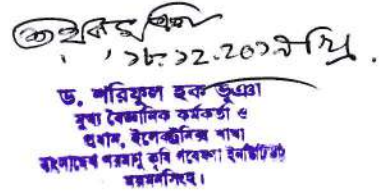 ১৮.১২.২০১৭খ্রি.
ড. শরিফুল হক ভূঞা
মুখ্য বৈজ্ঞানিক কর্মকর্তা ও
প্রধান, ইলেকট্রনিক্স শাখা
বাংলাদেশ পরমাণু কৃষি গবেষণা ইনস্টিটিউট
ময়মনসিংহ।